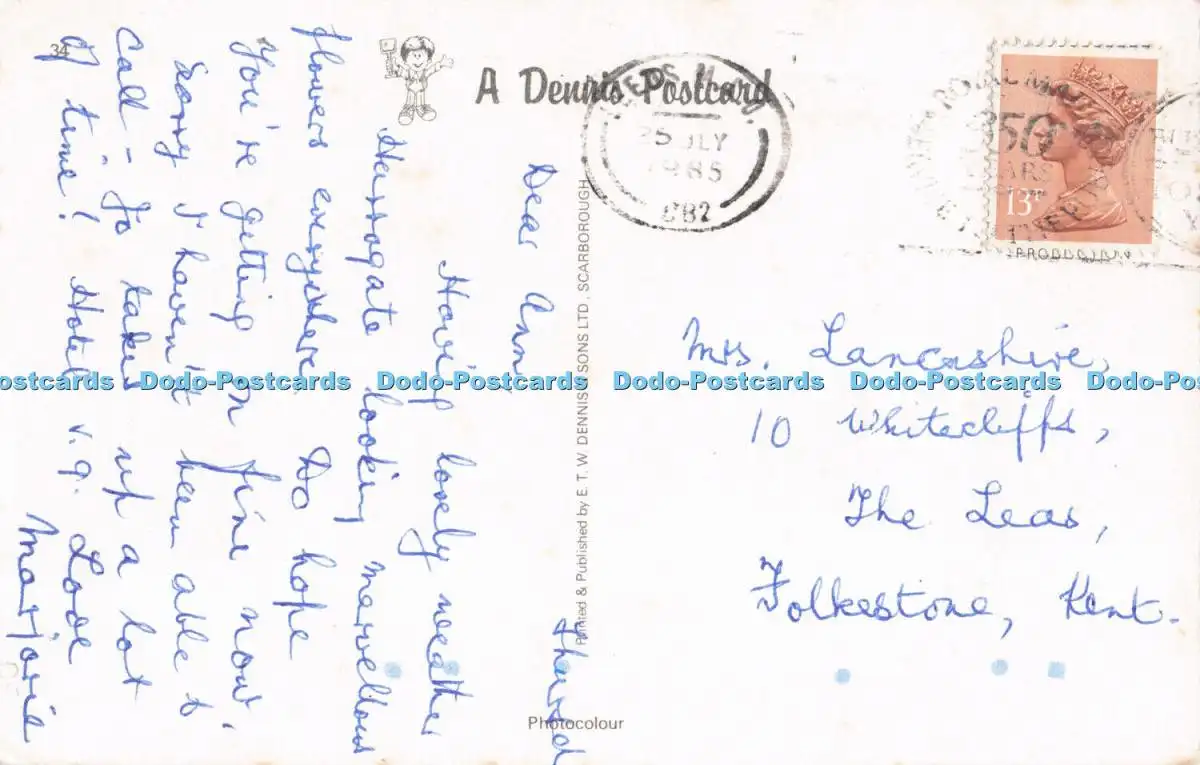 34
A Dennis Postcard
Thursd
Dear Ann,
Having lovely weather
Harrogate looking marvellous
flowers everywhere. Do hope
You're getting on fine now.
Sorry I haven't been able to
call - Jo takes up a lot
of time! Hotel v.g. Love
Marjorie
Printed & Published by E. T. W. DENNIS & SONS LTD., SCARBOROUGH
Photocolour
25 JLY
1985
350
YEARS
13P
Mrs. Lancashire,
10 Whitecliffs,
The Leas,
Folkestone, Kent.
Dodo-Postcards Dodo-Postcards Dodo-Postcards Dodo-Postcards Dodo-Postcards